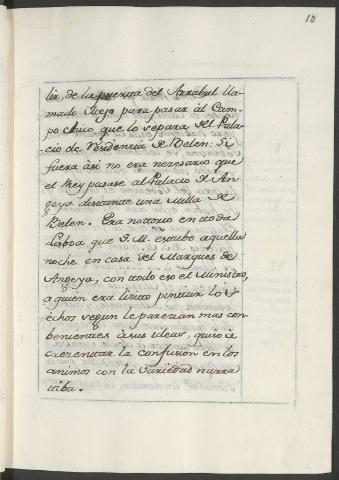 10
lir, de la puerta del Arrabal lla-
mado Viejo para pasar àl Cam-
po chico, que lo separa del Pala-
cio de Residencia de Belem: Si
fuera àsi no era nezesario que
el Rey pasase al Palacio de An-
geja distante una Milla de
Belen. Era notorio en toda
Lisboa que S. M. estubo aquella
noche en casa del Marques de
Angeja, con todo eso el Ministro,
a quien era licito pintar lo s
echos segun le parezian mas con-
benientes à sus ideas, quiso à
crezentar la confusion en los
animos con la variedad narra
tiba.